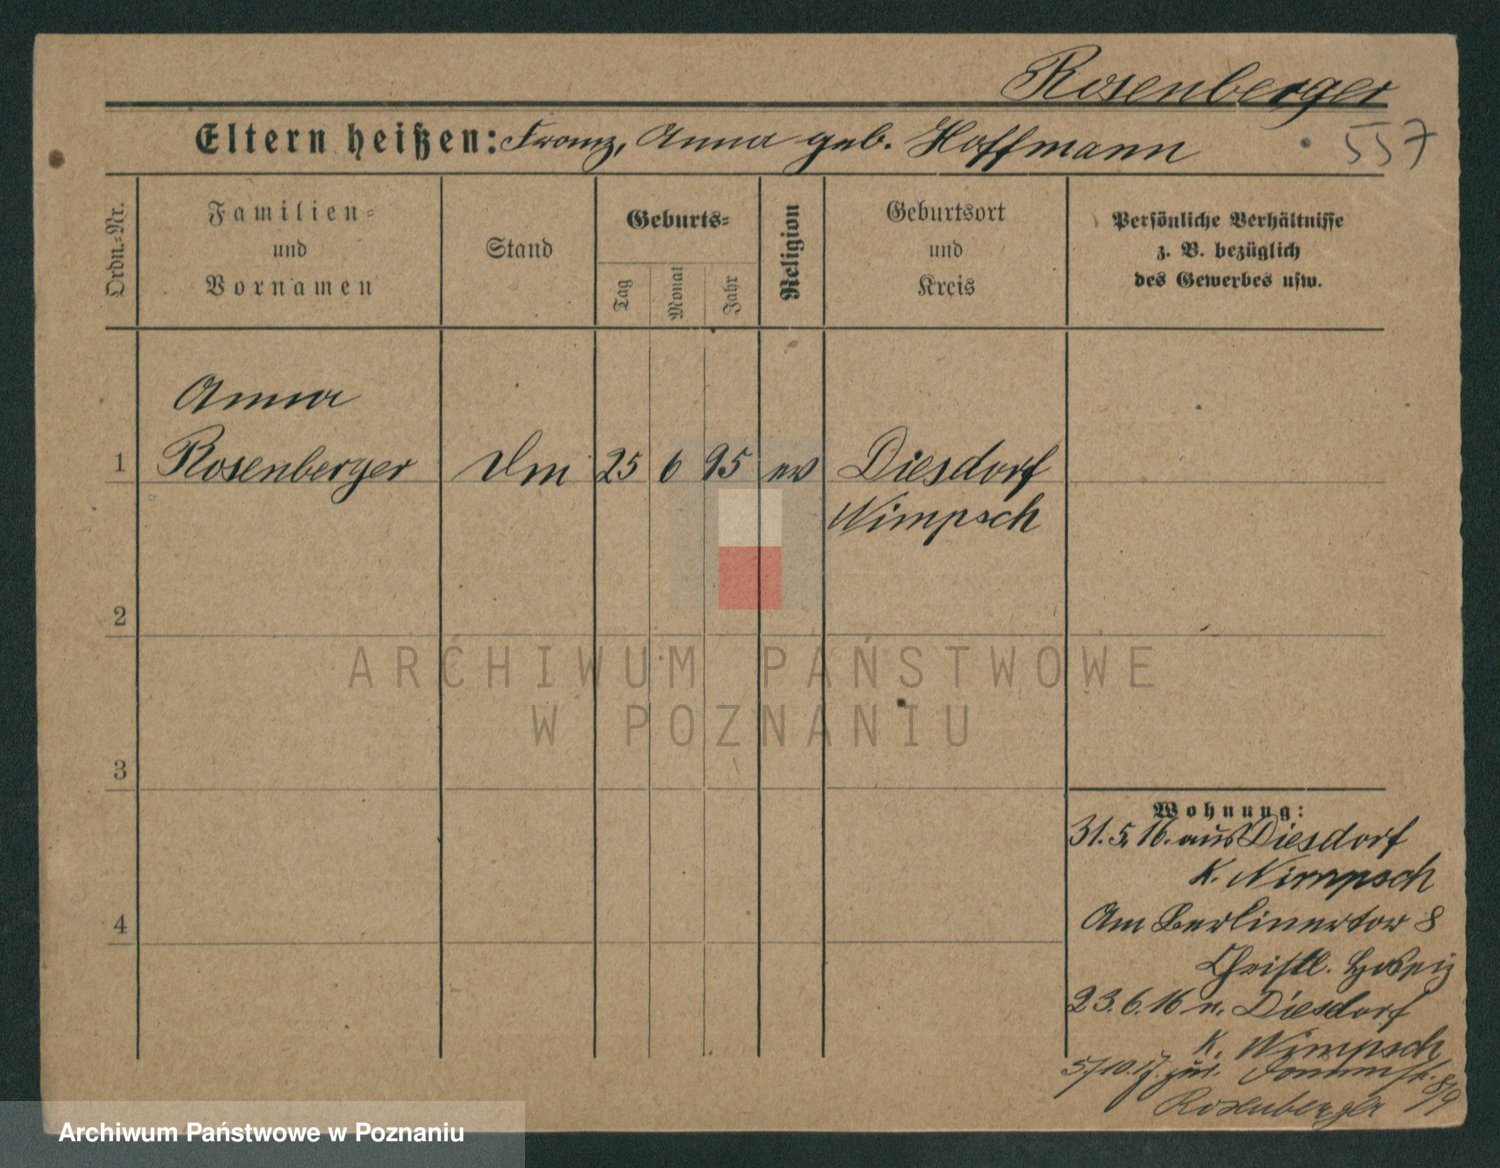 Rosenberger
Eltern heißen: Franz, Anna geb. Hoffmann
557
Ordn.-Nr.
Familien-
und
Vornamen
Stand
Geburts-
Tag
Monat
Jahr
Religion
Geburtsort
und
Kreis
Persönliche Verhältnisse
z. B. bezüglich
des Gewerbes usw.
Anna
1 Rosenberger Dm 25 6 95 ev Diesdorf
Nimpsch
2
3
4
Wohnung:
31.5.16. aus Diesdorf
K. Nimpsch
Am Berlinertor 8
Christl. Hospiz
23.6.16 n. Diesdorf
K. Nimpsch
5/10.17. zur.
Rosenberger
ARCHIWUM PAŃSTWOWE
W POZNANIU
Archiwum Państwowe w Poznaniu